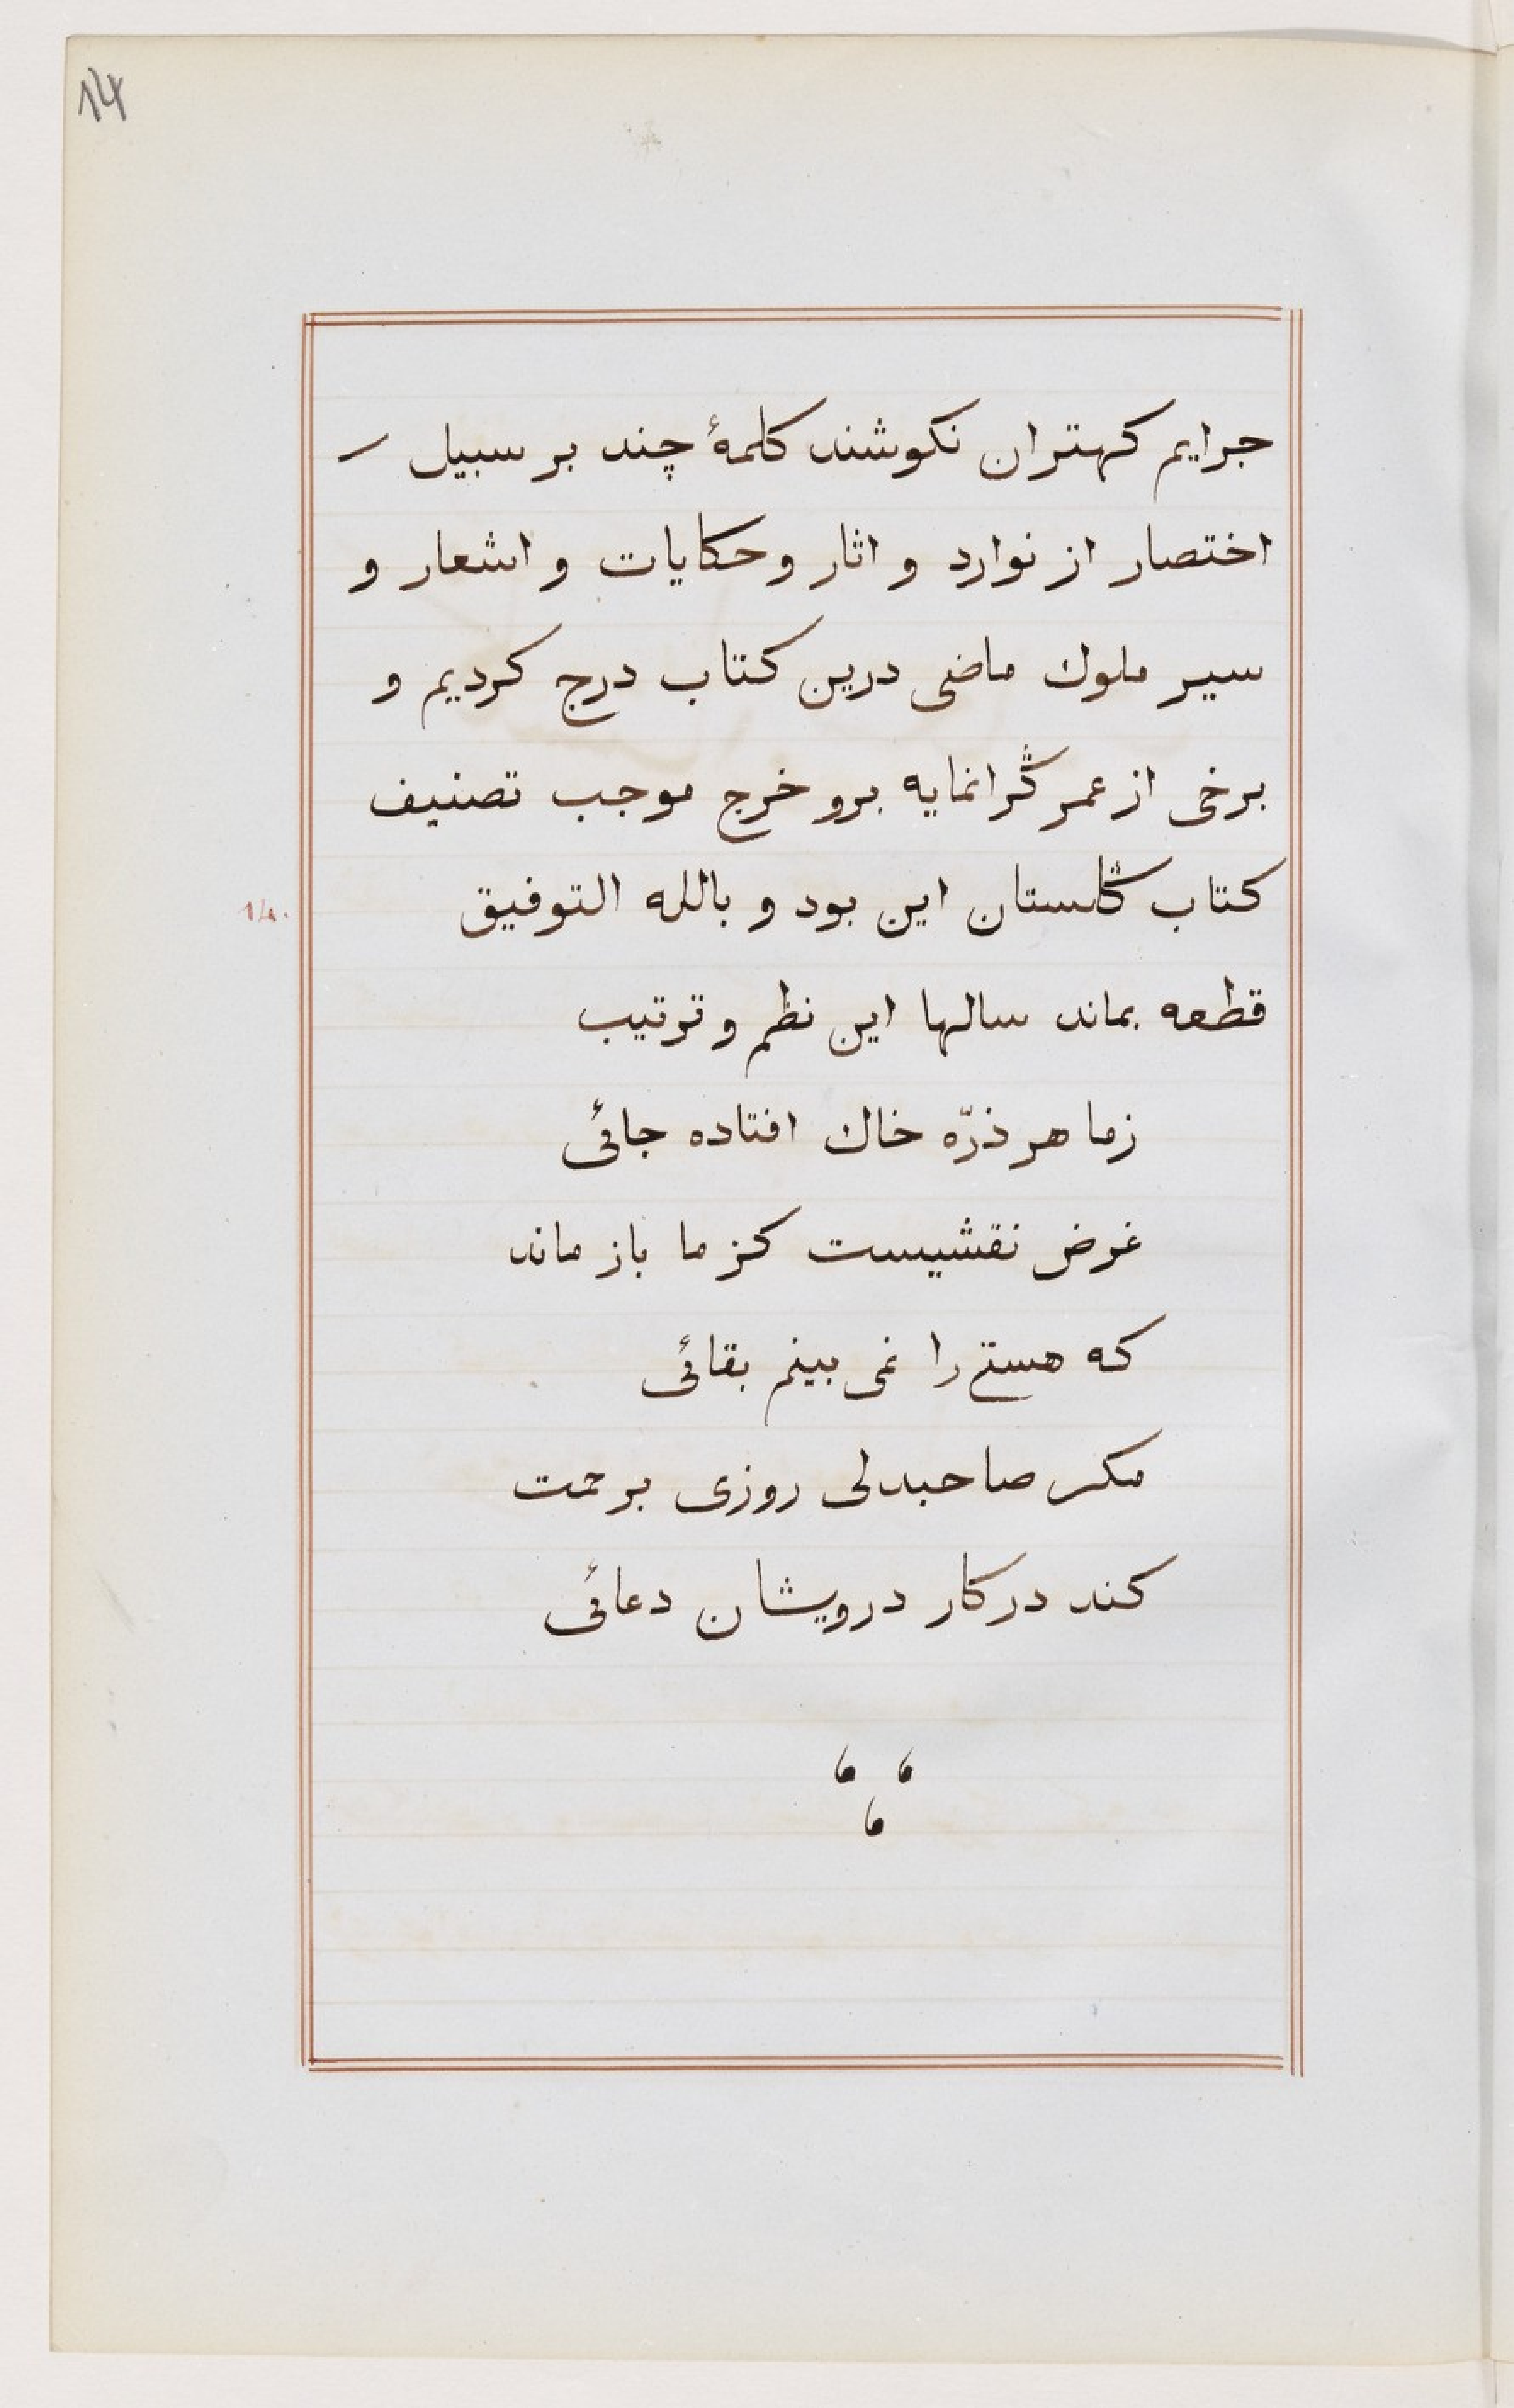 14
جرایم کهتران نکوشند کلمهٔ چند بر سبیل
اختصار از نوارد و اثار و حکایات و اشعار و
سیر ملوك ماضی درین کتاب درج کردیم و
برخی از عمر گرانمایه برو خرج موجب تصنیف
کتاب گلستان این بود و بالله التوفیق
قطعه بماند سالها این نظم و ترتیب
زما هر ذرّه خاك افتاده جائی
غرض نقشیست کز ما باز ماند
که هستی را نمی بینم بقائی
مکر صاحبدلی روزی برحمت
کند در کار درویشان دعائی